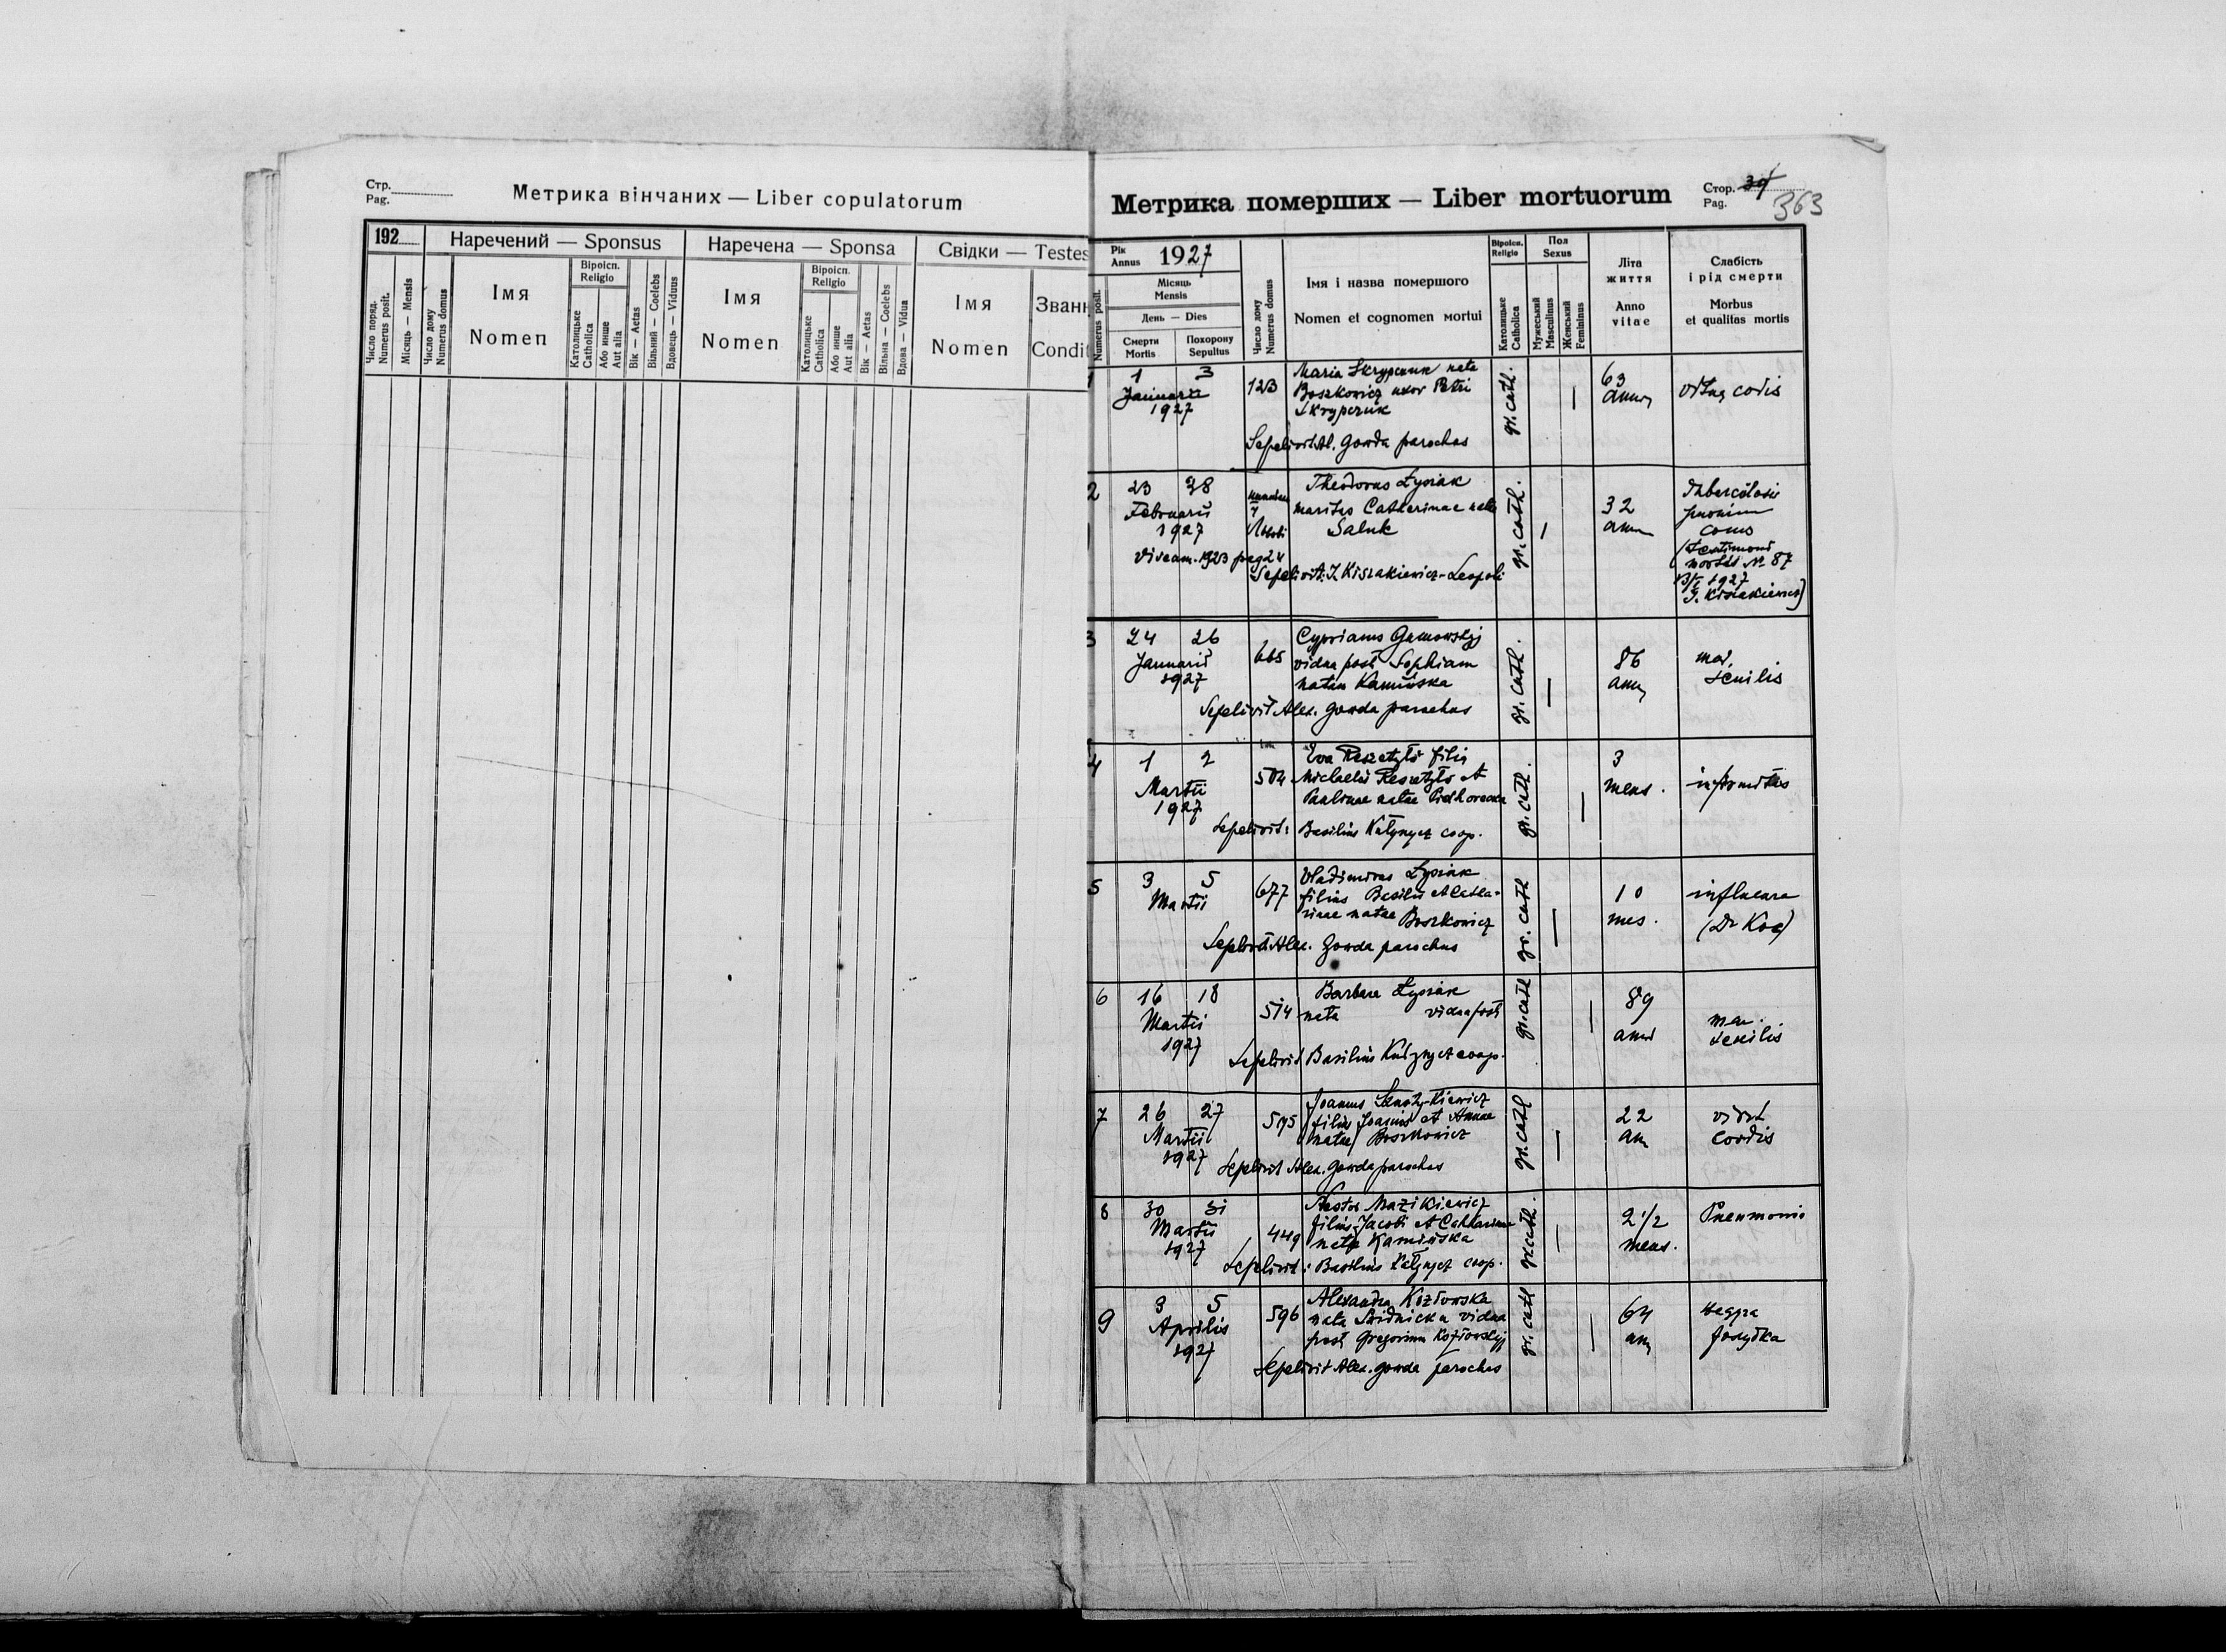 Стр.
Pag.
Метрика вінчаних — Liber copulatorum
192
Наречений — Sponsus
Наречена — Sponsa
Свідки — Testes
Число поряд.
Numerus posit.
Місяць — Mensis
Число дому
Numerus domus
Імя
Nomen
Віроісп.
Religio
Католицьке
Catholica
Або инше
Aut alia
Вік — Aetas
Вільний — Coelebs
Вдовець — Viduus
Імя
Nomen
Віроісп.
Religio
Католицьке
Catholica
Або инше
Aut alia
Вік — Aetas
Вільна — Coelebs
Вдова — Vidua
Імя
Nomen
Званн
Condit
Метрика померших — Liber mortuorum
Стор.
Pag.
39
363
Рік
Annus 1927
Numerus posit.
Місяць
Mensis
День — Dies
Смерти
Mortis
Похорону
Sepultus
Число дому
Numerus domus
Імя і назва помершого
Nomen et cognomen mortui
Віроісп.
Religio
Католицьке
Catholica
Пол
Sexus
Мужеський
Masculinus
Женський
Femininus
Літа
життя
Anno
vitae
Слабість
і рід смерти
Morbus
et qualitas mortis
1
1 3
Januarii
1927
123
Maria Skrypczuk nata
Boszkowicz uxor Petri
Skrypczuk
Sepelivit Al. Gowda parochus
gr. cath.
63
cordis
2
23 28
Februarii
1927
Theodorus Łysiak
maritus Catherinae natae
Saluk
pag 24
Sepelivit: J. Kiszakiewicz - Leopoli
gr. cath.
32
Tuberculosis
mortis № 87
1927
J. Kiszakiewicz)
3
24 26
Januarii
1927
665
Cyprianus
post Sophiam
natam Kamińska
Sepelivit Alex. Gowda parochus
gr. cath.
86
senilis
4
1 2
Martii
1927
504
Eva Reszetyło filia
Michaelis Reszetyło et
Paulinae natae
Sepelivit: Basilius coop.
gr. cath.
3
mens.
infirmitas
5
3 5
Martii
677
Vladimirus Łysiak
filius Basilii et Catha-
rinae natae Boszkowicz
Sepelivit Alex. Gowda parochus
gr. cath
10
mes.
influenza
(Dr Koc)
6
16 18
Martii
1927
514
Barbara Łysiak
nata vidua post
Sepelivit Basilius coop.
gr. cath
89
senilis
7
26 27
Martii
1927
595
Joannes
filius Joannis et Annae
natae Boszkowicz
Sepelivit Alex. Gowda parochus
gr. cath
22
an
cordis
8
30 31
Martii
1927
449
Nestor Mazikiewicz
filius Jacobi et Catharinae
nata Kamińska
Sepelivit: Basilius coop.
gr. cath.
2 1/2
mens.
Pneumonia
9
3 5
Aprilis
1927
596
Alexandra Kozłowska
nata vidua
post Gregorium Kozłowskyj
Sepelivit Alex. Gowda parochus
gr. cath
64